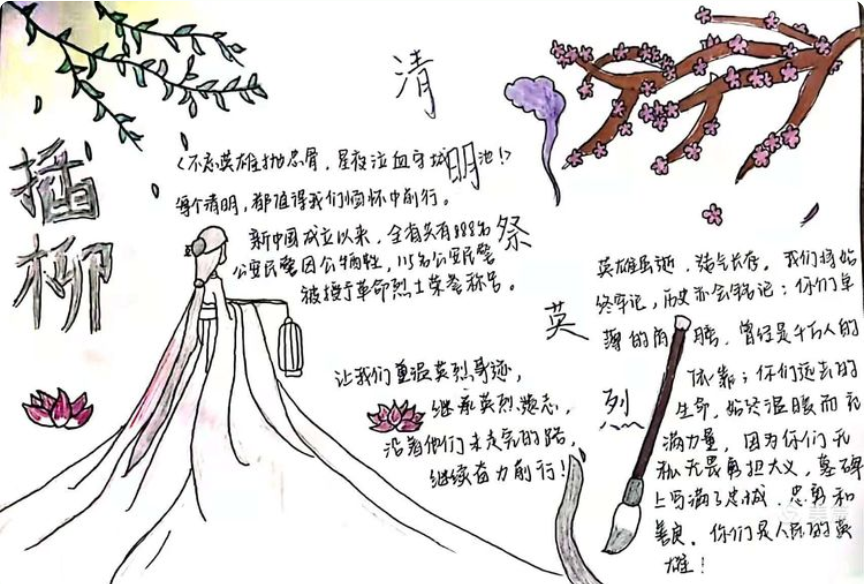 清
明
祭
英
烈
插
柳
《不忘英雄抛忠骨,星夜泣血守城池!》
每个清明,都值得我们缅怀中前行。
新中国成立以来,全省共有888名
公安民警因公牺牲,115名公安民警
被授予革命烈士荣誉称号。
让我们重温英烈事迹,
继承英烈遗志,
沿着他们未走完的路,
继续奋力前行!
英雄虽逝,浩气长存。我们将始
终牢记,历史亦会铭记:你们单
薄的肩膀,曾经是千万人的
依靠;你们远去的
生命,始终温暖而充
满力量,因为你们无
私无畏勇担大义,墓碑
上写满了忠诚、忠勇和
善良。你们是人民的英
雄!